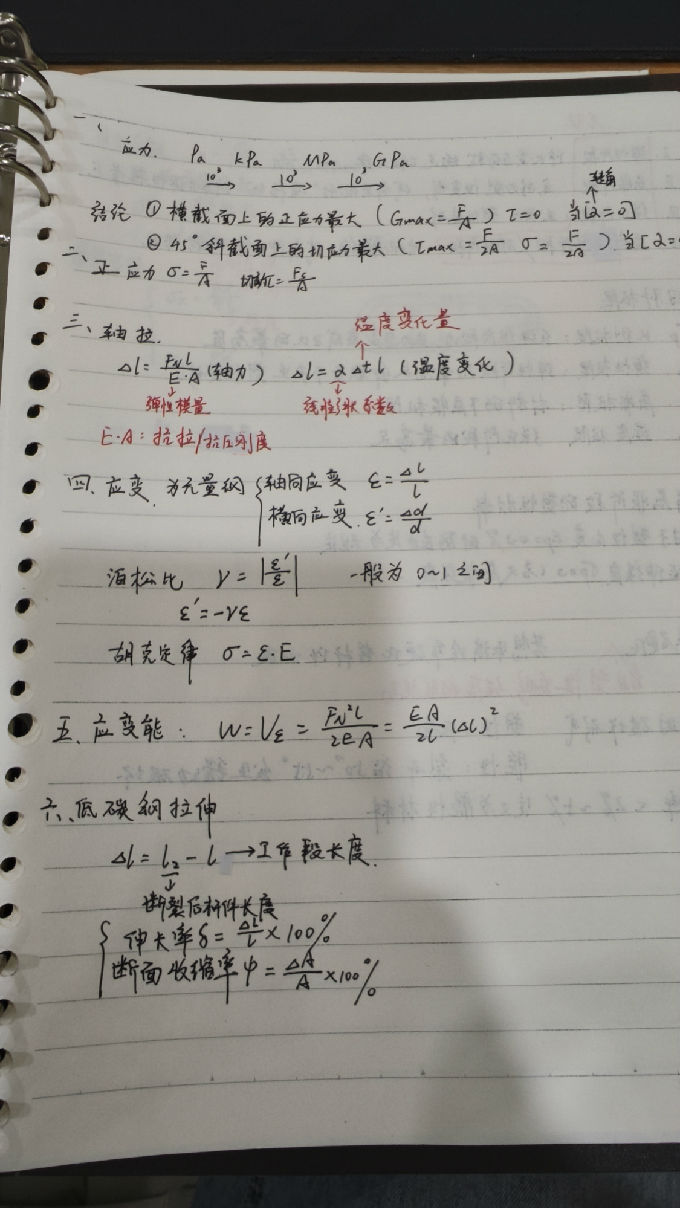 一、
应力. Pa →10³ kPa →10³ MPa →10³ GPa
转角
结论 ① 横截面上的正应力最大 (Gmax=F/A) τ=0 当[α=0]
② 45°斜截面上的切应力最大 (τmax=F/2A σ=F/2A) 当[α=
二、正应力 σ=F/A 切应τ=Fs/A
三、轴拉. 温度变化量
Δl=FNl/E·A (轴力) Δl=αΔtl (温度变化)
弹性模量 线性膨胀系数
E·A: 抗拉/抗压刚度
四、应变. 为无量纲 { 轴向应变 ε=Δl/l
横向应变. ε'=Δd/d
泊松比 γ=|ε'/ε| 一般为 0~1 之间
ε'=-γε
胡克定律 σ=ε·E.
五、应变能: W=Vε=FN²l/2EA=EA/2l(Δl)²
六、低碳钢拉伸
Δl=l₂-l →工作段长度.
断裂后杆件长度
{ 伸长率δ=Δl/l×100%
断面收缩率ψ=ΔA/A×100%